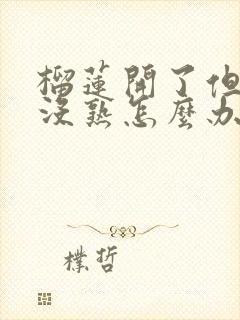 榴蓮開了但
沒熟怎麼办
樸哲